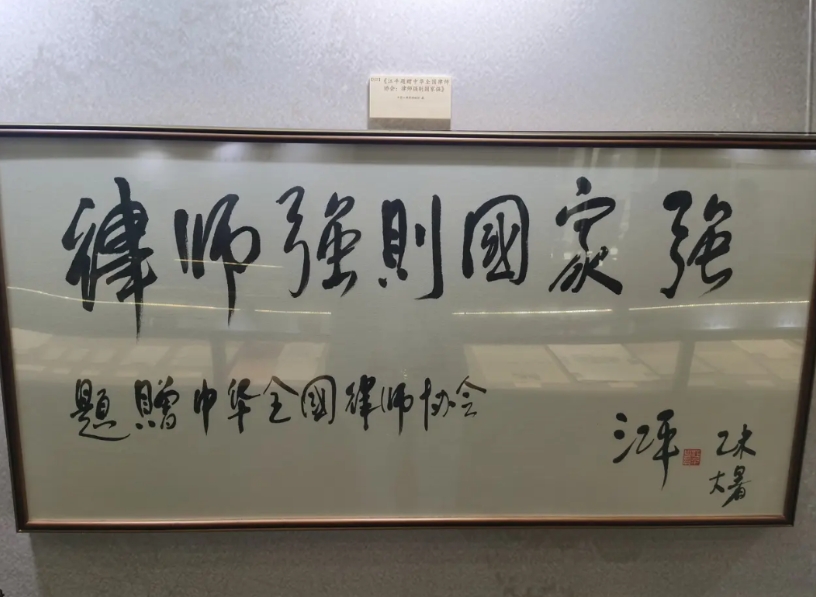 《江平题赠中华全国律师
协会：律师强则国家强》
律师强则國家强
題贈中华全國律师协会
江平 乙未
大暑